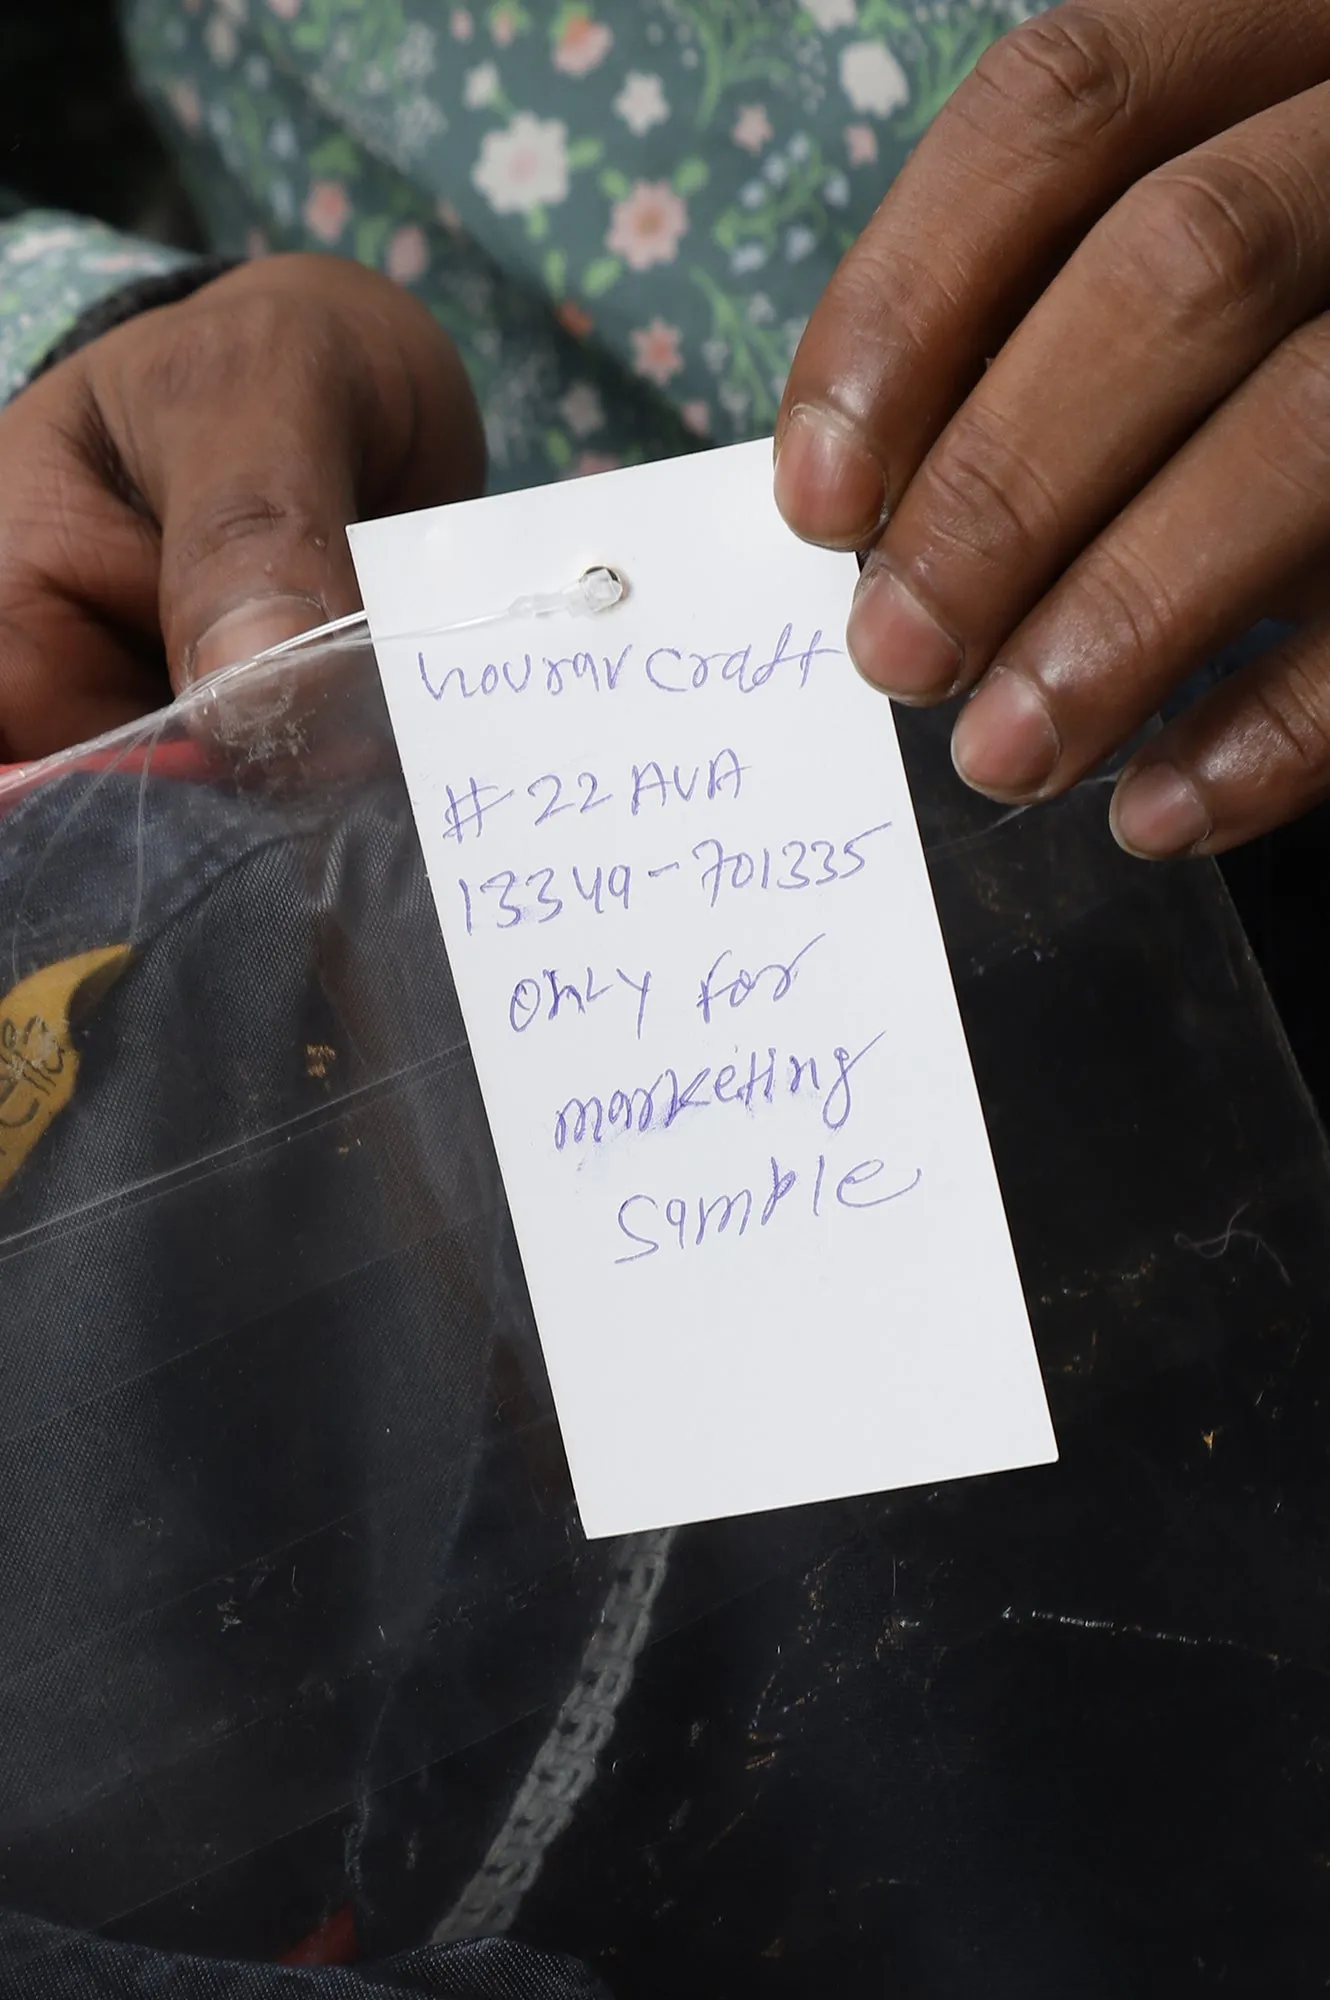 hourar craft
# 22 AVA
13349-701335
ONLY for
marketing
Sample